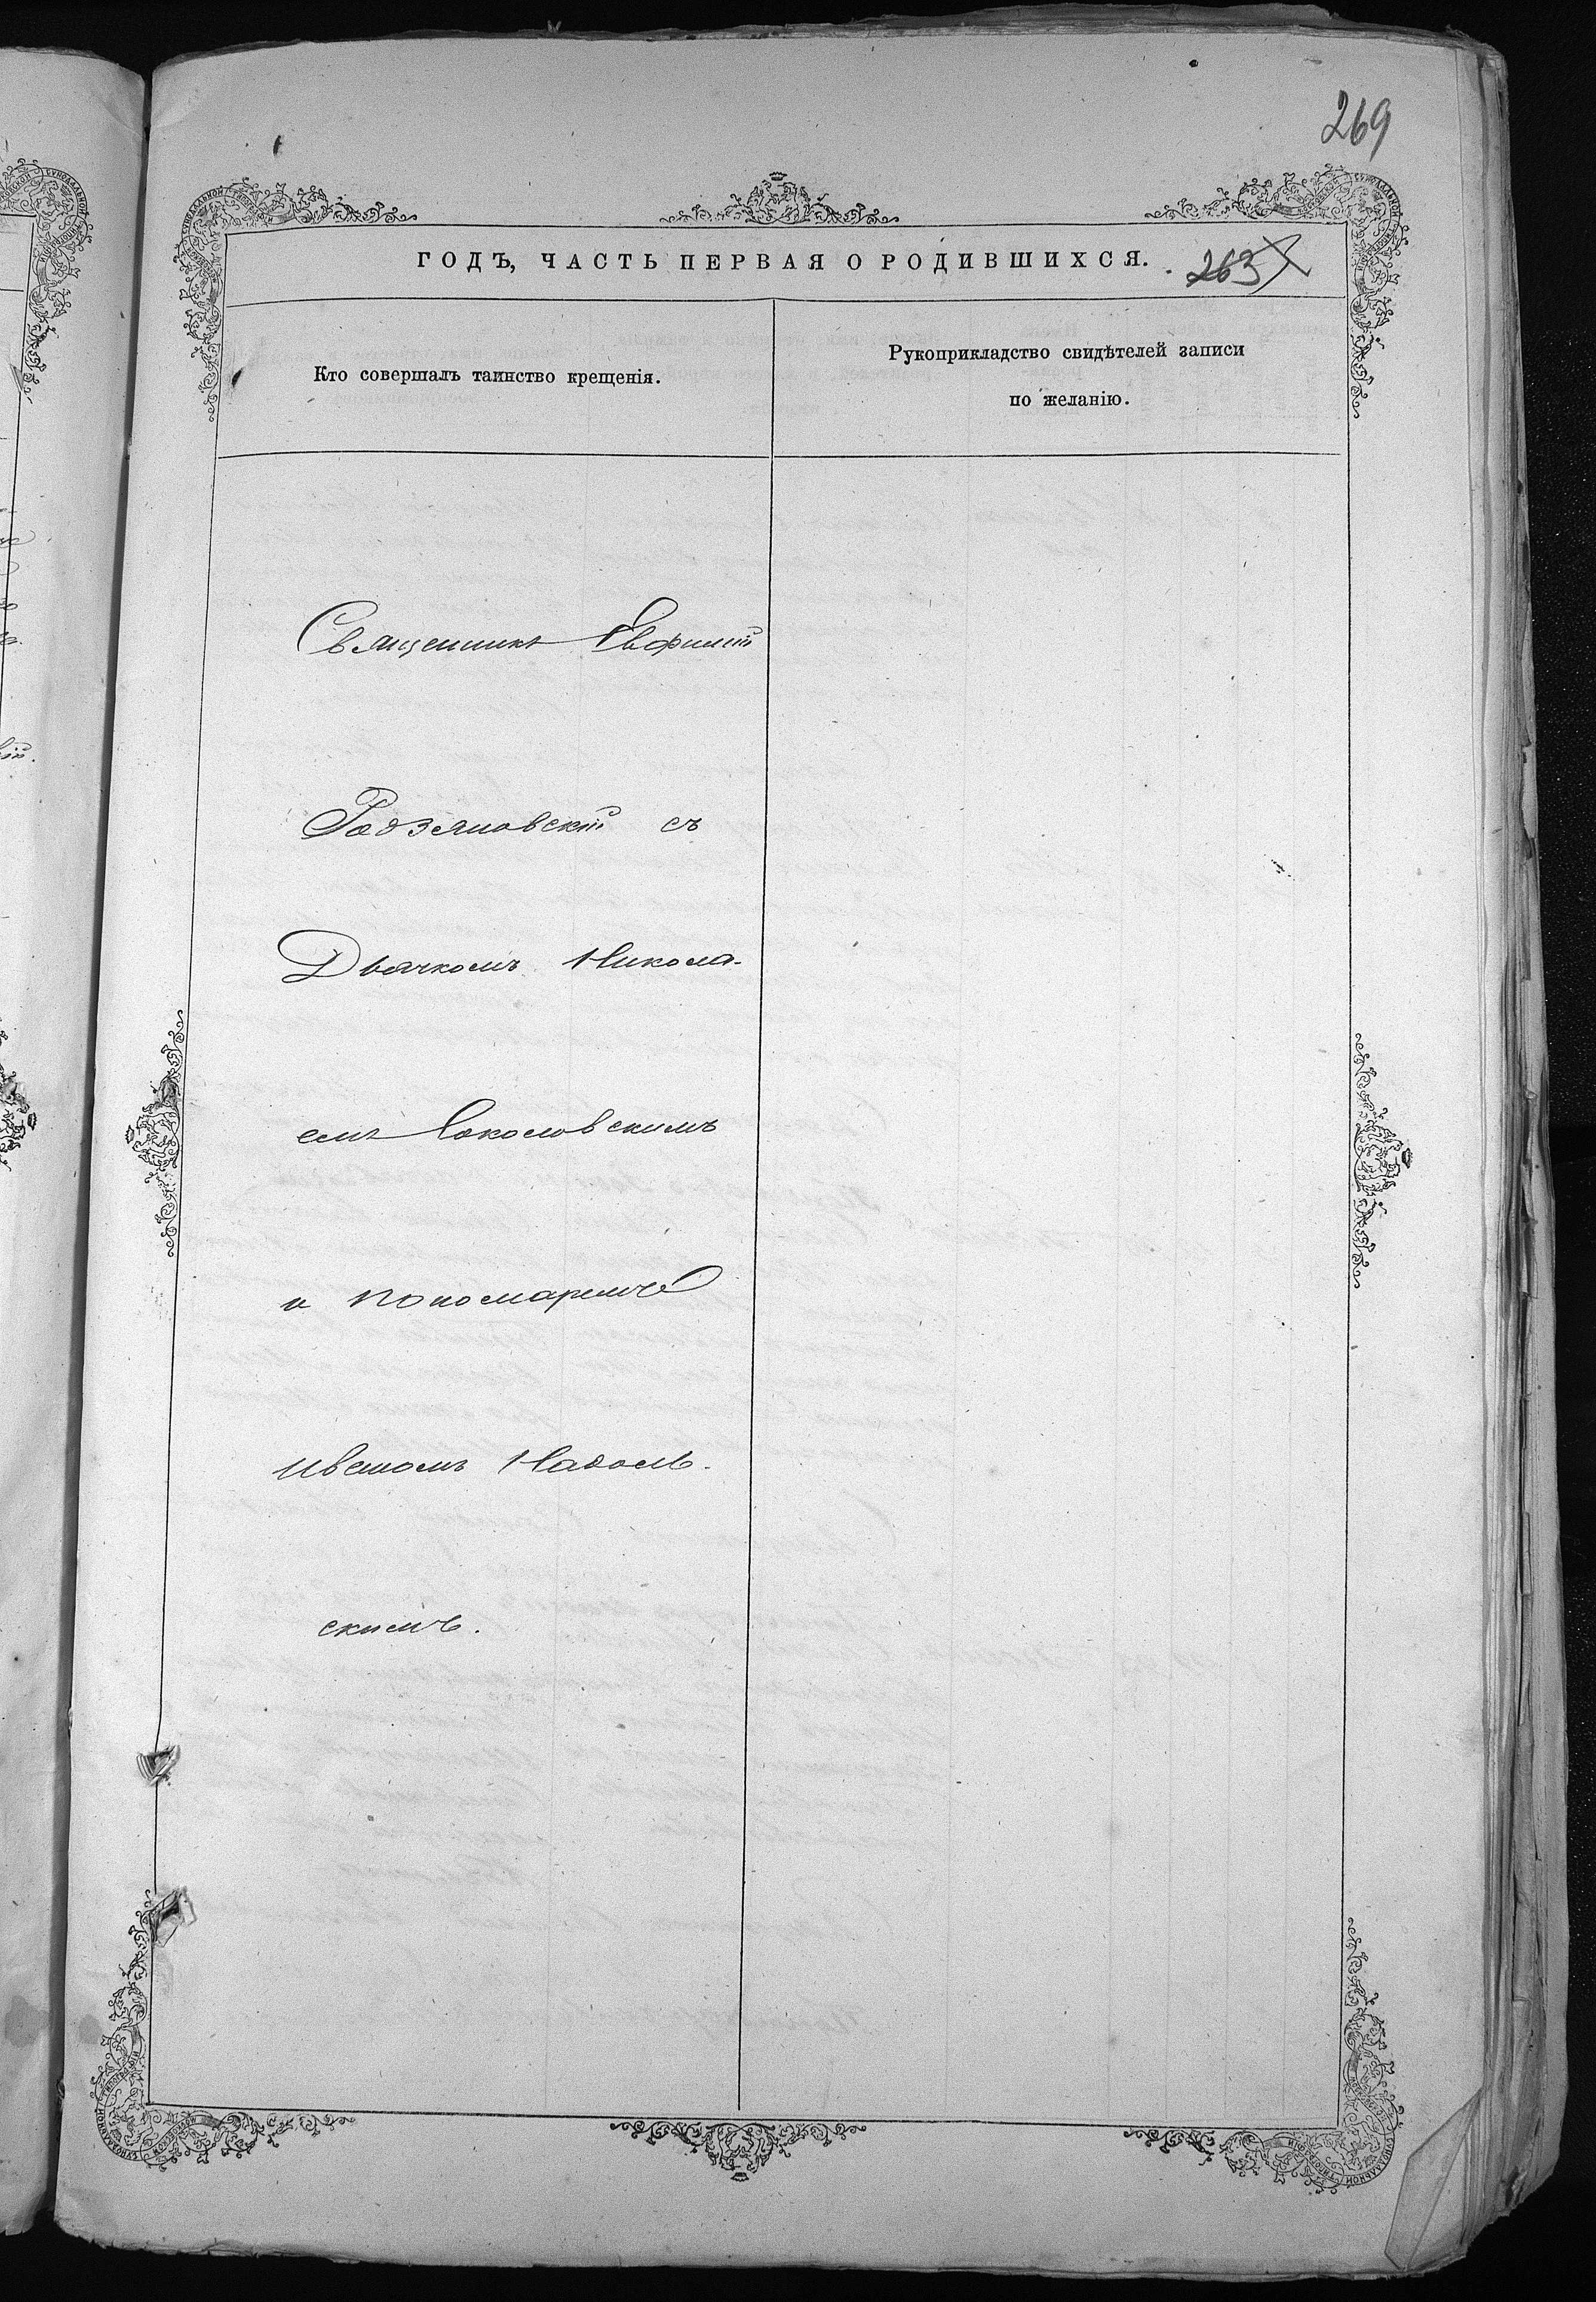 269
ГОДЪ, ЧАСТЬ ПЕРВАЯ О РОДИВШИХСЯ.
263
Кто совершалъ таинство крещенія.
Рукоприкладство свидѣтелей записи
по желанію.
Священникъ Евфимій
Радзяновскій съ
Дьячкомъ Никола-
емъ Соколовскимъ
и пономаремъ
Иваномъ Надоль-
скимъ.